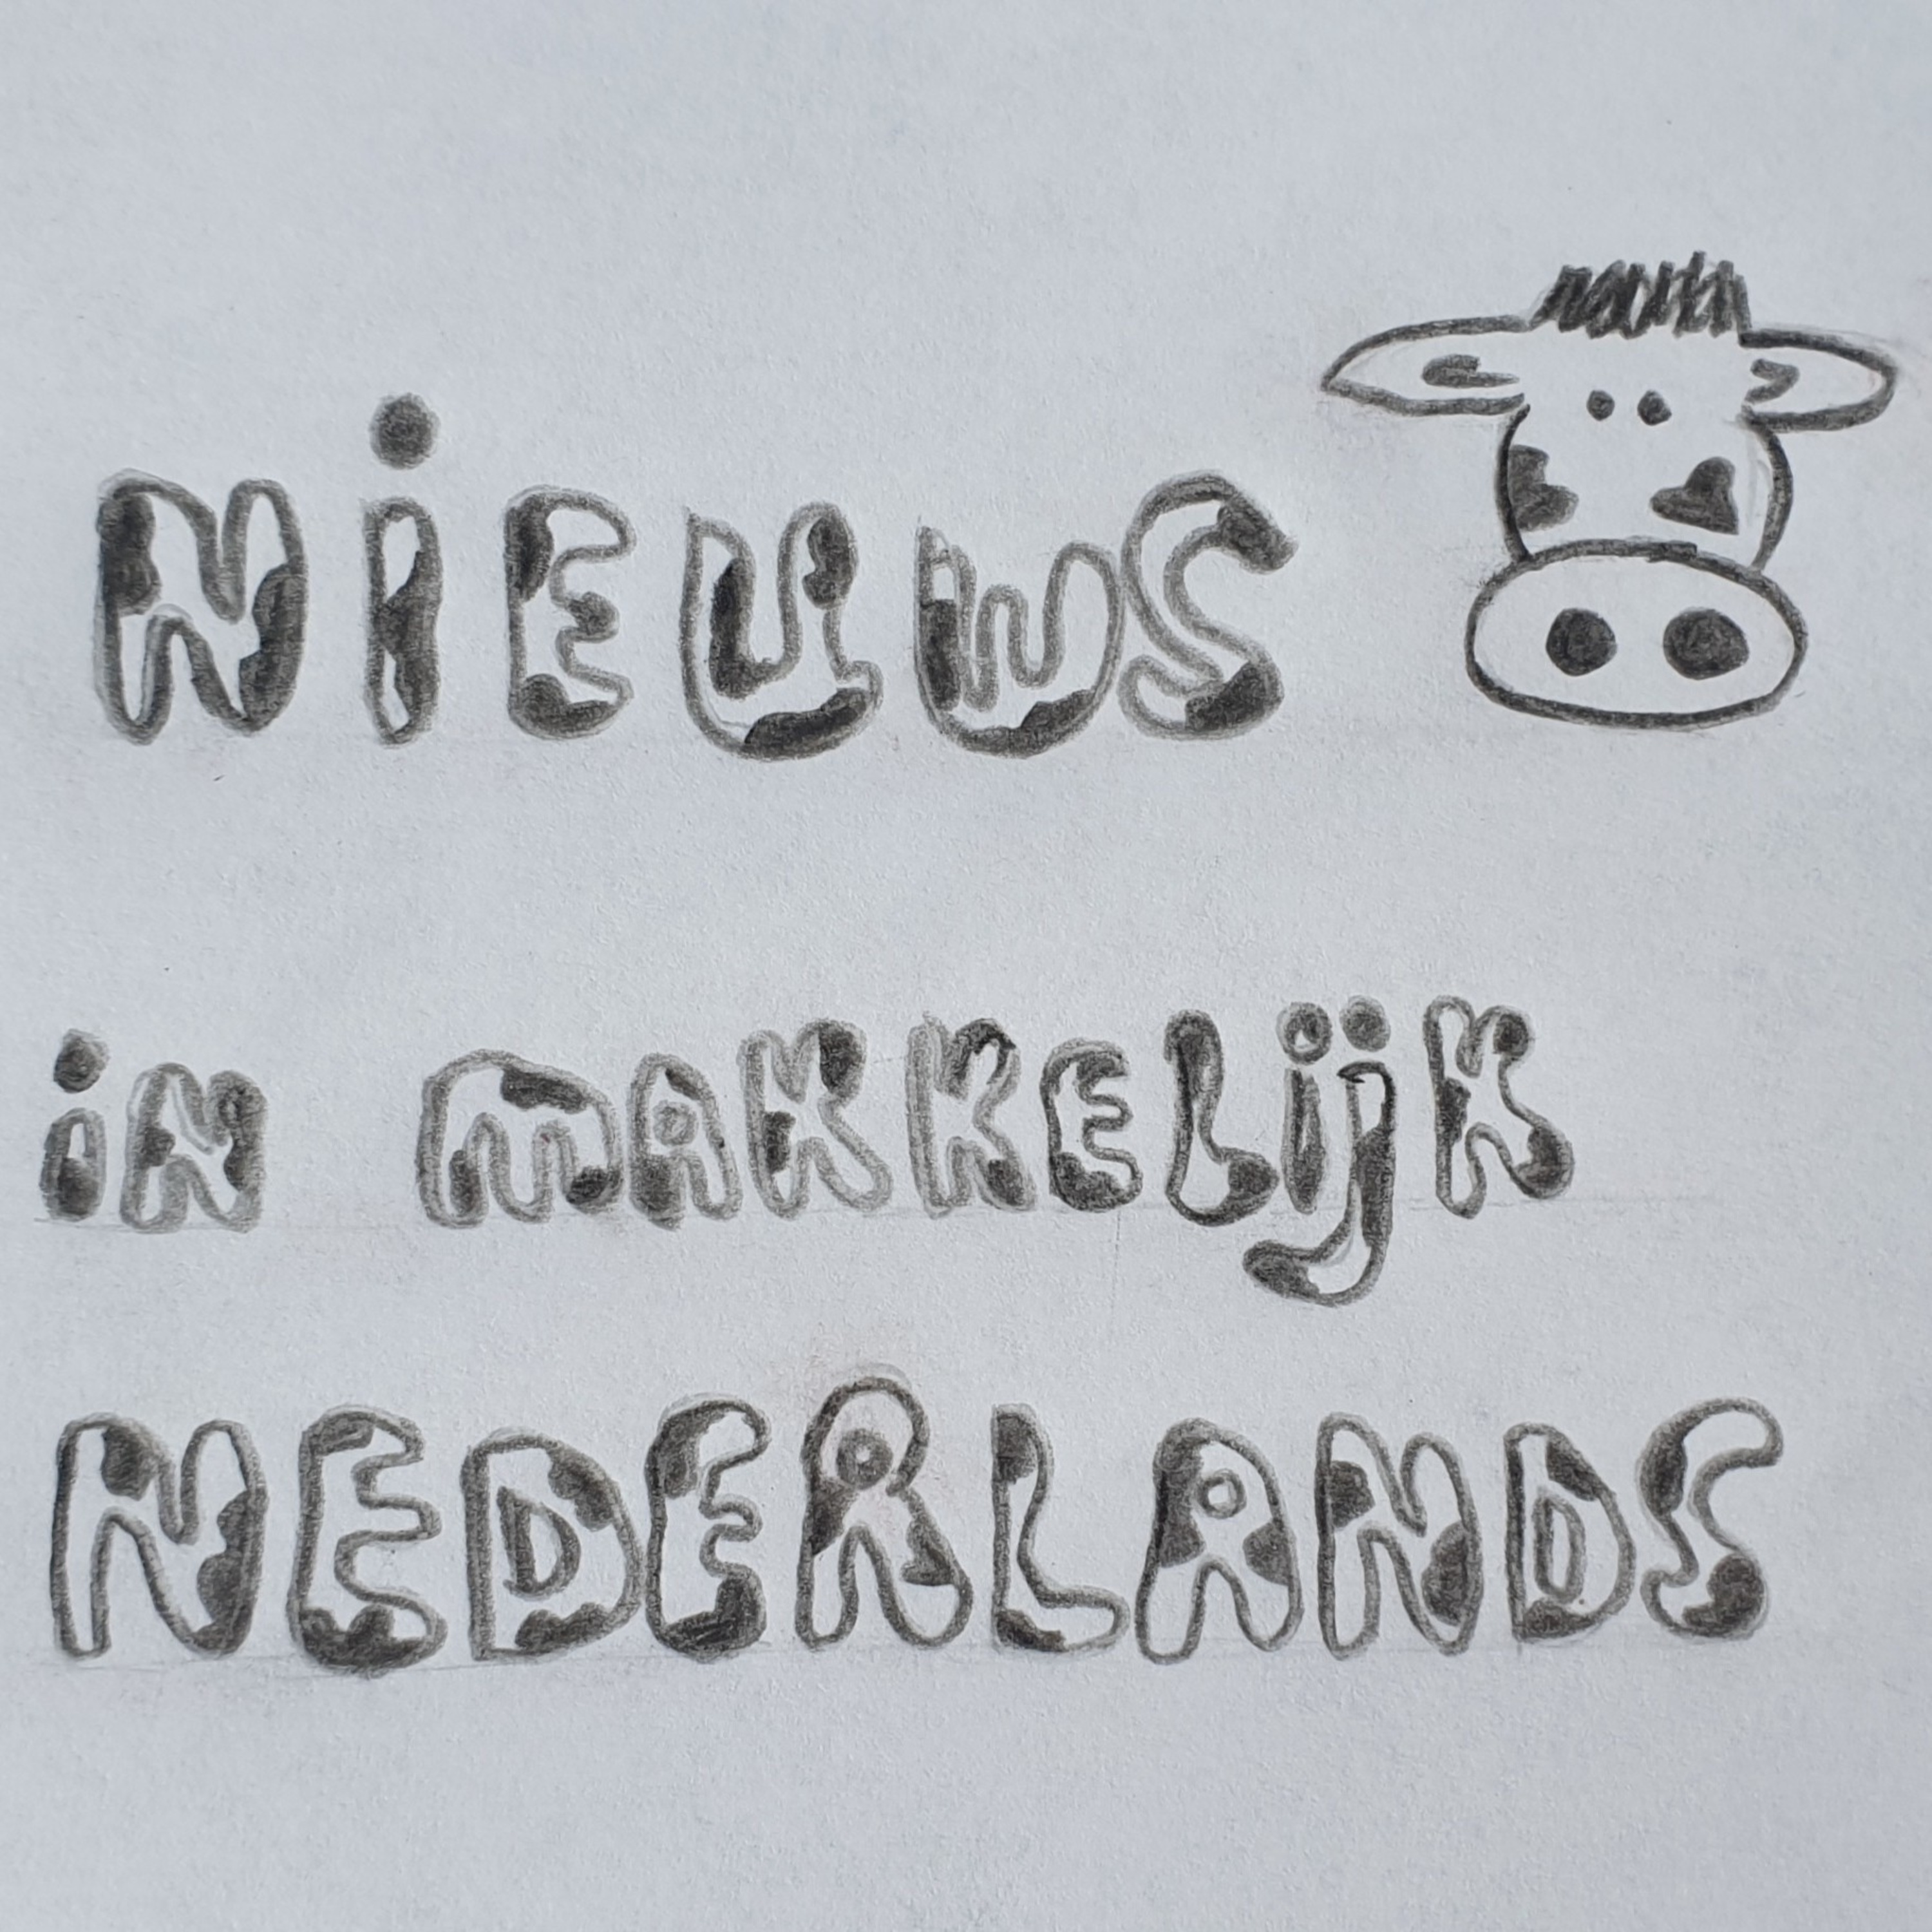 NiEUWS
iN MAKKELijK
NEDERLANDS